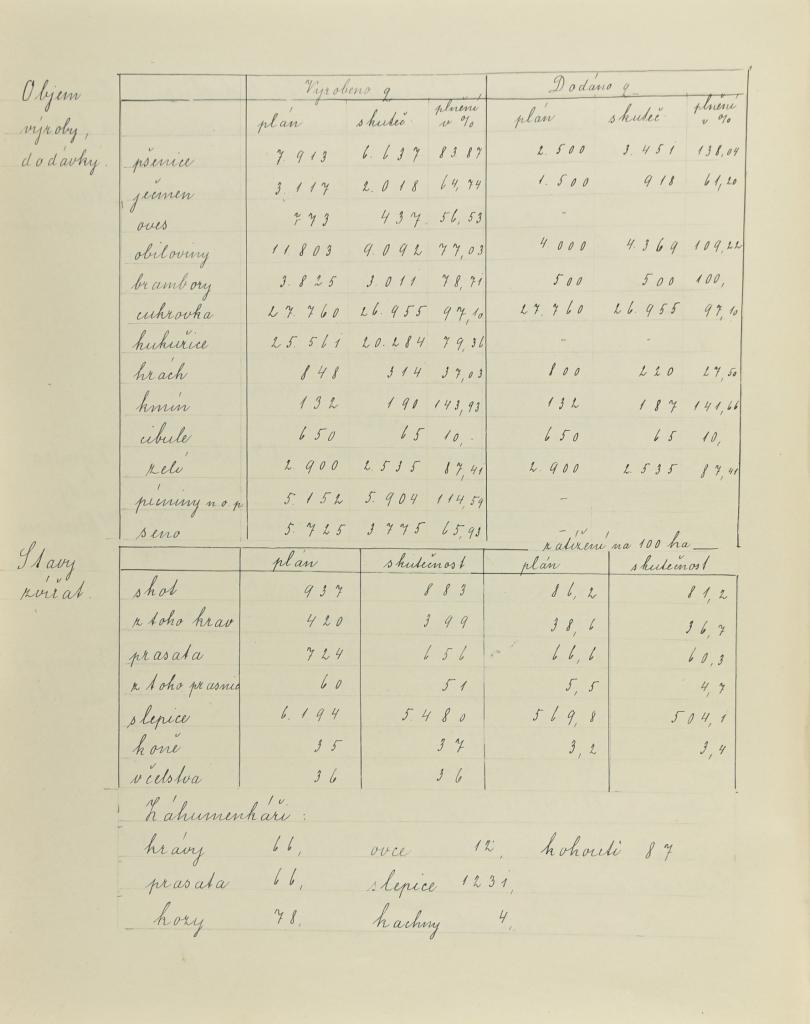 Objem výroby, dodávky.
Vyrobeno q Dodáno q
plán skuteč plnění v % plán skuteč plnění v %
pšenice 7 913 6.637 83 87 2.500 3.451 138,04
ječmen 3.117 2.018 64,74 1.500 918 61,20
oves 773 437 56,53 -
obiloviny 11 803 9.092 77,03 4 000 4.369 109,22
brambory 3.825 3.011 78,71 500 500 100,
cukrovka 27.760 26.955 97,10 27.760 26.955 97,10
kukuřice 25.561 20.284 79,36 - -
hrách 848 314 37,03 800 220 27,50
kmín 132 190 143,93 132 187 141,66
cibule 650 65 10,- 650 65 10,
zelí 2.900 2.535 87,41 2.900 2.535 87,41
pícniny n o.p 5.152 5.904 114,59 -
seno 5.725 3775 65,93 -
Stavy zvířat.
zatížení na 100 ha
plán skutečnost plán skutečnost
skot 937 883 86,2 81,2
z toho krav 420 399 38,6 36,7
prasata 724 656 66,6 60,3
z toho prasnic 60 51 5,5 4,7
slepice 6.194 5.480 569,8 504,1
koně 35 37 3,2 3,4
včelstva 36 36
Záhumenkáři:
krávy 66, ovce 12, kohouti 87
prasata 66, slepice 1231,
kozy 78, kachny 4,